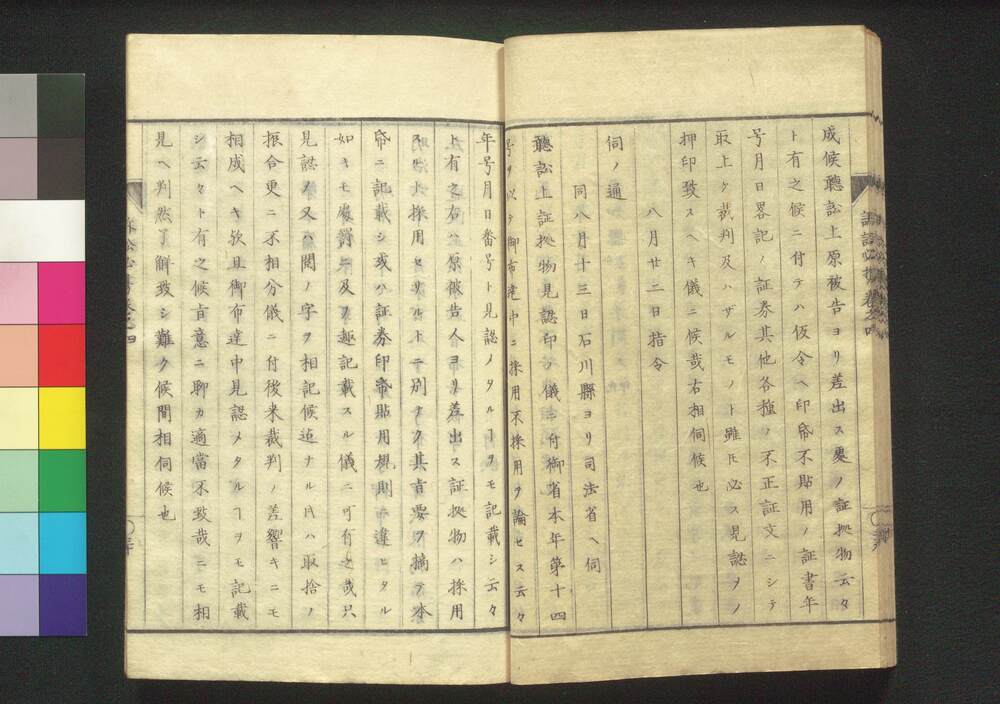 成候聽訟上原被告ヨリ差出ス處ノ証拠物云々
ト有之候ニ付テハ仮令ヘ印帋不貼用ノ証書年
号月日畧記ノ証券其他各種ノ不正証文ニシテ
取上ケ裁判及ハザルモノト雖𪜈必ス見認ヲノ
押印致スヘキ儀ニ候哉右相伺候也
八月廿二日指令
伺ノ通
同八月十三日石川縣ヨリ司法省ヘ伺
聽訟上証拠物見認印ノ儀ニ付御省本年第十四
号ヲ以テ御布達中ニ採用不採用ヲ論セス云々
年号月日番号ト見認メタルヿヲモ記載シ云々
上有之右ハ原被告人ヨリ差出ス証拠物ハ採用
スルト採用セサルトニ別ナク其旨要ヲ摘テ本
帋ニ記載シ或ハ証券印帋貼用規則ニ違ヒタル
如キモ處罰ニ及フ趣記載スル儀ニ可有之哉只
見認メ又ハ閲ノ字ヲ相記候迠ナル片ハ取捨ノ
振合更ニ不相分儀ニ付後来裁判ノ差響キニモ
相成ヘキ欤且御布達中見認メタルヿヲモ記載
シ云々ト有之候旨意ニ聊カ適當不致哉ニモ相
見ヘ判然了解致シ難ク候間相伺候也